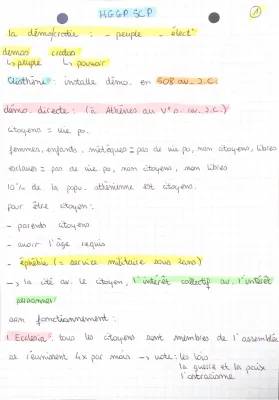 HGGP SCP
1
la démo/cratie : - peuple - élect°
demos cratos
↳ peuple ↳ pouvoir
Clisthène : installe démo. en 508 av. J.C.
démo. directe : (à Athènes au V° s. av. J.C.)
citoyens = vie po.
femmes, enfants, métèques = pas de vie po, non citoyens, libres
esclaves = pas de vie po, non citoyens, non libres
10% de la popu. athénienne est citoyens.
pour être citoyen :
- parents citoyens
- avoir l'âge requis
- éphébie (= service militaire sous 2ans)
-> la cité av. le citoyen, l'intérêt collectif av. l'intérêt
personnel
son fonctionnement :
1. Ecclesia : tous les citoyens sont membres de l'assemblée
se réunissent 4x par mois -> vote : les lois
la guerre et la paix
l'ostracisme